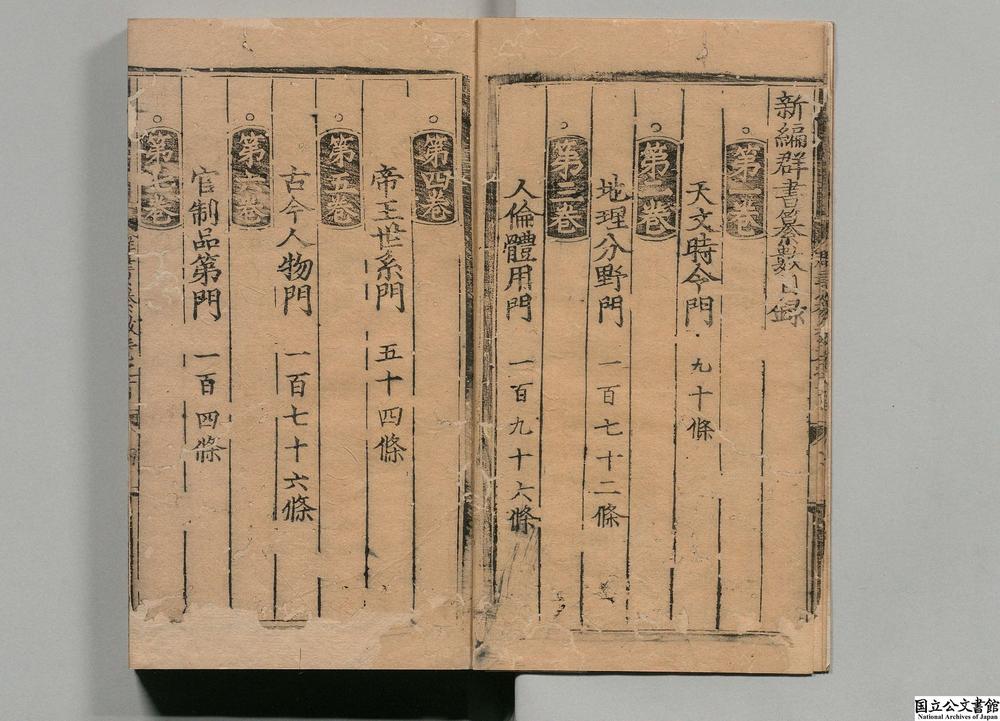 新編群書纂數目錄
第一卷
天文時令門 九十條
第二卷
地理分野門 一百七十二條
第三卷
人倫體用門 一百九十六條
第四卷
帝王世系門 五十四條
第五卷
古今人物門 一百七十六條
第六卷
官制品第門 一百四條
第七卷
国立公文書館
National Archives of Japan